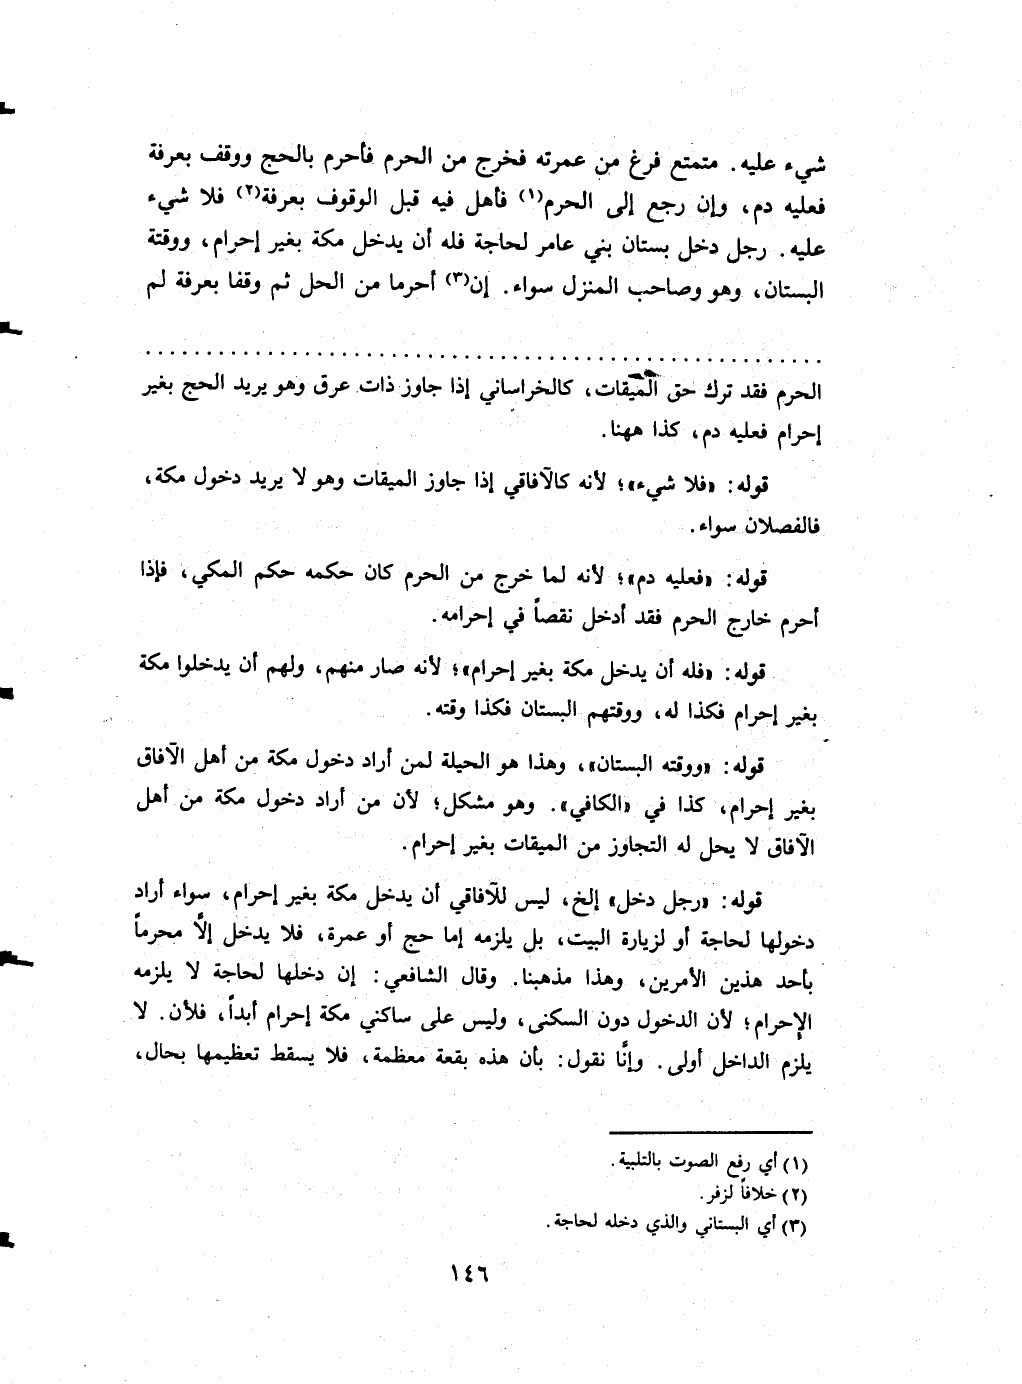 شيء عليه. متمتع فرغ من عمرته فخرج من الحرم فأحرم بالحج ووقف بعرفة
فعليه دم، وإن رجع إلى الحرم(١) فأهل فيه قبل الوقوف بعرفة(٢) فلا شيء
عليه. رجل دخل بستان بني عامر لحاجة فله أن يدخل مكة بغير إحرام، ووقتة
البستان، وهو وصاحب المنزل سواء. إن(٣) أحرما من الحل ثم وقفا بعرفة لم
الحرم فقد ترك حق الميقات، كالخراساني إذا جاوز ذات عرق وهو يريد الحج بغير
إحرام فعليه دم، كذا ههنا.
قوله: «فلا شيء»؛ لأنه كالآفاقي إذا جاوز الميقات وهو لا يريد دخول مكة،
فالفصلان سواء.
قوله: «فعليه دم»؛ لأنه لما خرج من الحرم كان حكمه حكم المكي، فإذا
أحرم خارج الحرم فقد أدخل نقصاً في إحرامه.
قوله: «فله أن يدخل مكة بغير إحرام»؛ لأنه صار منهم، ولهم أن يدخلوا مكة
بغير إحرام فكذا له، ووقتهم البستان فكذا وقته.
قوله: «ووقته البستان»، وهذا هو الحيلة لمن أراد دخول مكة من أهل الآفاق
بغير إحرام، كذا في «الكافي». وهو مشكل؛ لأن من أراد دخول مكة من أهل
الآفاق لا يحل له التجاوز من الميقات بغير إحرام.
قوله: «رجل دخل» إلخ، ليس للآفاقي أن يدخل مكة بغير إحرام، سواء أراد
دخولها لحاجة أو لزيارة البيت، بل يلزمه إما حج أو عمرة، فلا يدخل إلَّا محرماً
بأحد هذين الأمرين، وهذا مذهبنا. وقال الشافعي: إن دخلها لحاجة لا يلزمه
الإحرام؛ لأن الدخول دون السكنى، وليس على ساكني مكة إحرام أبداً، فلأن. لا
يلزم الداخل أولى. وإنَّا نقول: بأن هذه بقعة معظمة، فلا يسقط تعظيمها بحال،
(١) أي رفع الصوت بالتلبية.
(٢) خلافاً لزفر.
(٣) أي البستاني والذي دخله لحاجة.
١٤٦